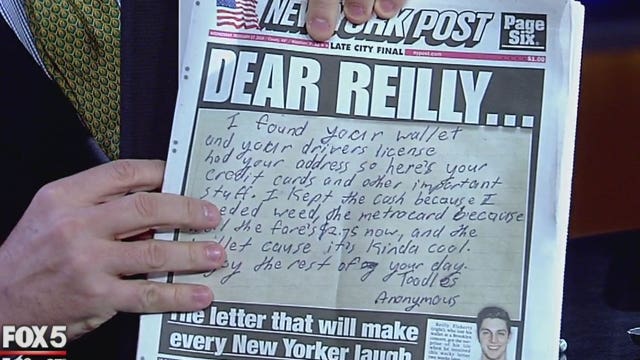 NEW YORK POST
Page
Six.
LATE CITY FINAL
nypost.com
$1.00
DEAR REILLY...
I found your wallet
and your drivers license
had your address so here's your
credit cards and other important
stuff. I kept the cash because I
eeded weed, the metrocard because
ll the fare's $2.75 now, and the
llet cause it's kinda cool.
joy the rest of your day.
Toodles
Anonymous
The letter that will make
every New Yorker laugh
Reilly Flaherty
FOX 5